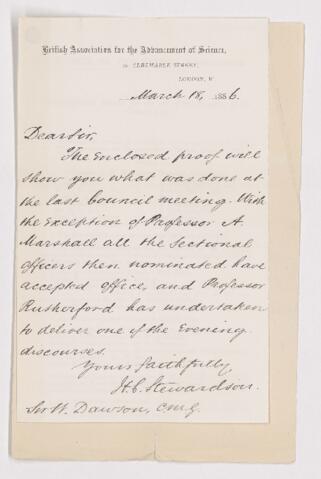 British Association for the Advancement of Science,
22 ALBEMARLE STREET,
LONDON, W
March 18, 1886.
Dear Sir,
The Enclosed proof will
show you what was done at
the last Council meeting. With
the Exception of Professor A.
Marshall all the Sectional
officers then nominated have
accepted office, and Professor
Rutherford has undertaken
to deliver one of the Evening
discourses.
Yours faithfully,
H. C. Stewardson.
Sir W. Dawson, C.M.G.